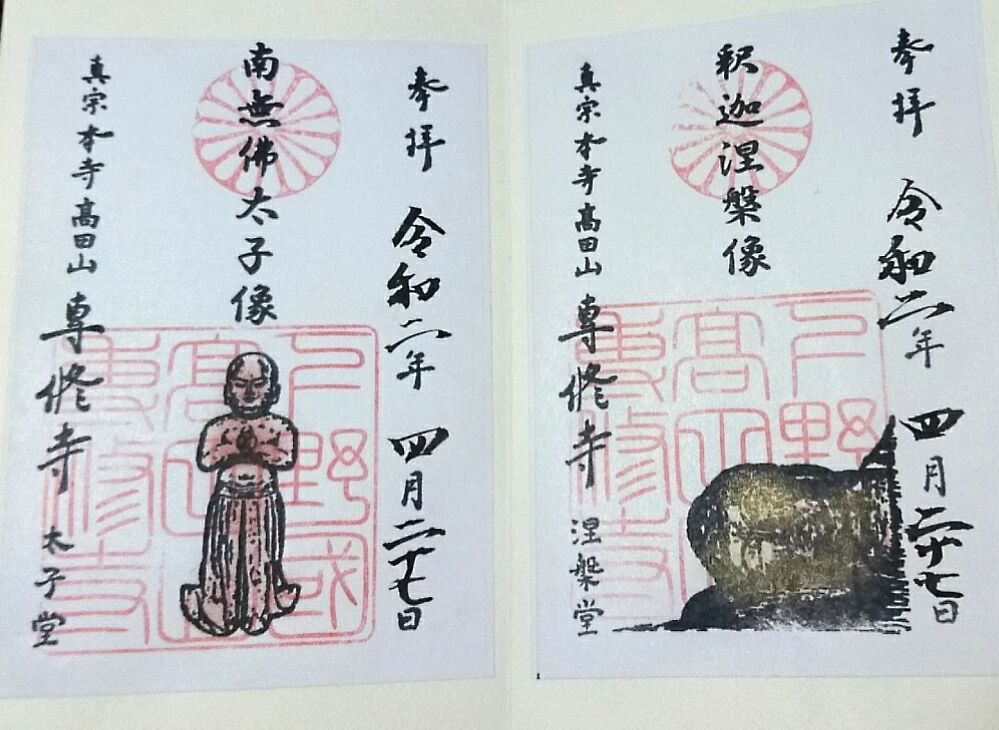 奉拝 令和二年 四月二十七日
釈迦涅槃像
真宗本寺高田山 専修寺 涅槃堂
奉拝 令和二年 四月二十七日
南無佛太子像
真宗本寺高田山 専修寺 太子堂